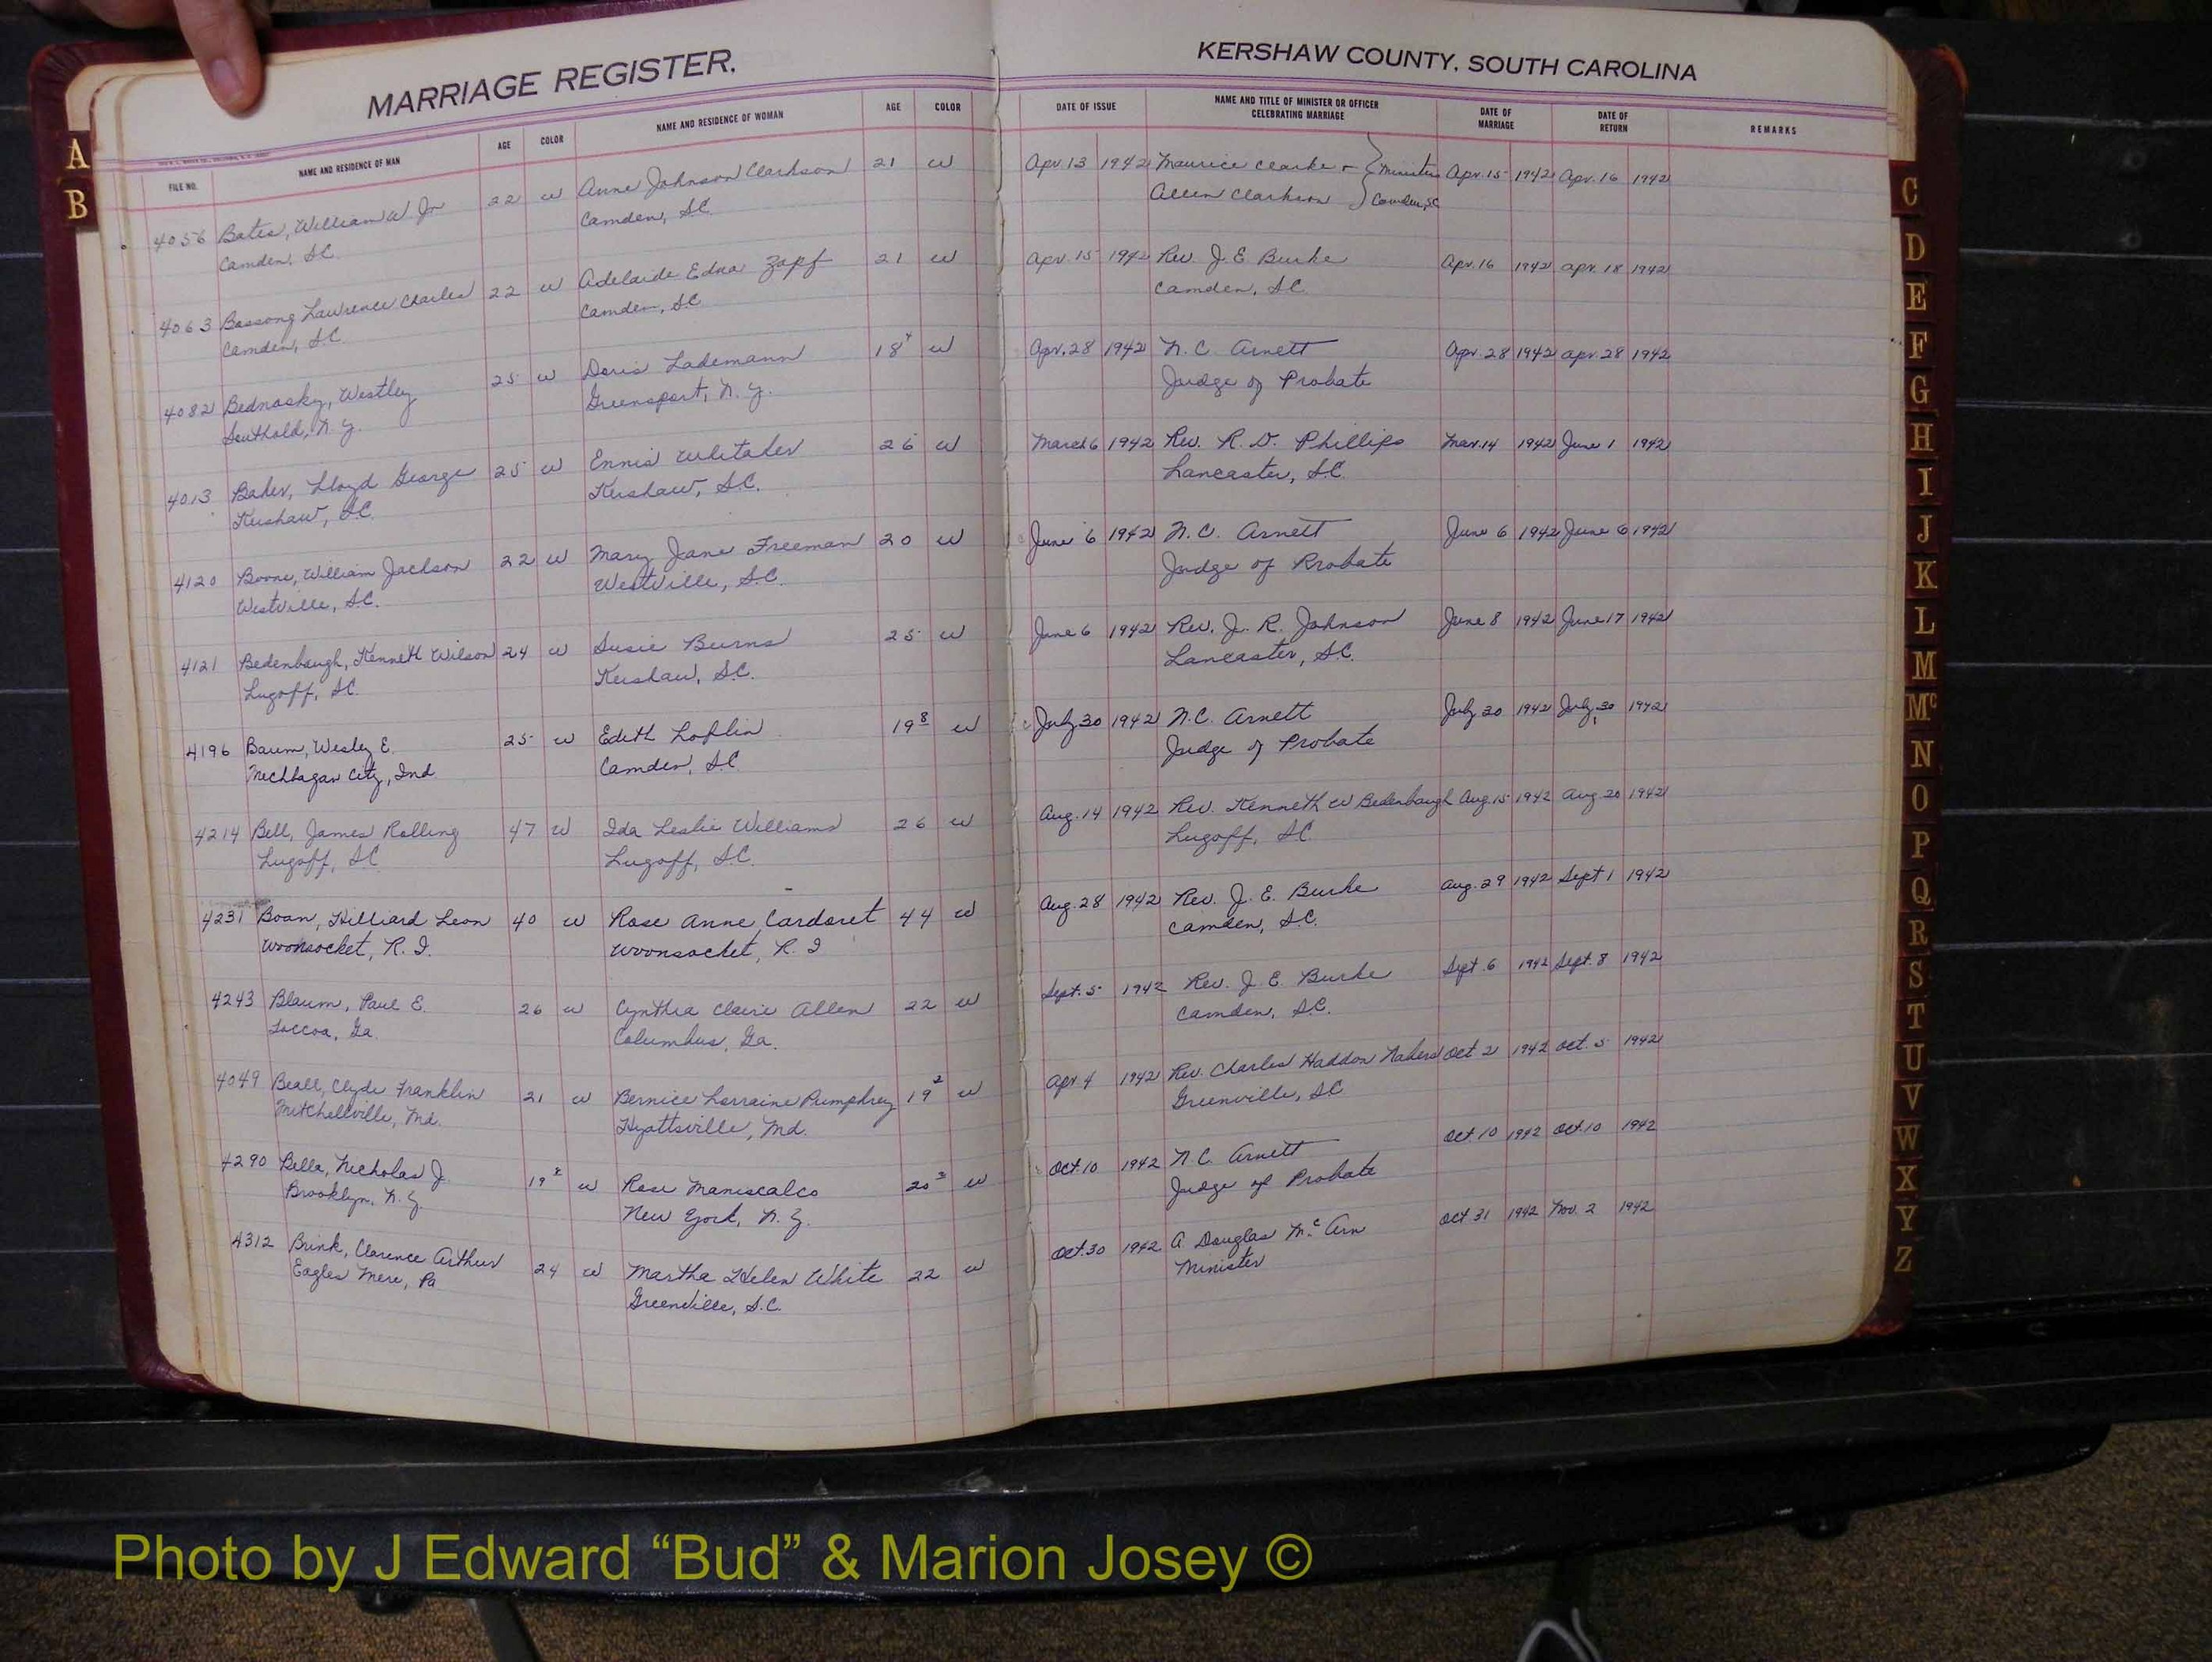 MARRIAGE REGISTER.
KERSHAW COUNTY, SOUTH CAROLINA
FILE NO. NAME AND RESIDENCE OF MAN AGE COLOR NAME AND RESIDENCE OF WOMAN AGE COLOR DATE OF ISSUE NAME AND TITLE OF MINISTER OR OFFICER CELEBRATING MARRIAGE DATE OF MARRIAGE DATE OF RETURN REMARKS
4056 Bates, William W Jr 22 W Anne Johnson Clarkson 21 W Apr. 13 1942 Maurice Clarke + Ministers Apr. 15 1942 Apr. 16 1942
Camden, S.C. Camden, S.C. Allen Clarkson Camden, SC
4063 Bassong Lawrence Charles 22 W Adelaide Edna Zapf 21 W Apr. 15 1942 Rev. J. E. Burke Apr. 16 1942 Apr. 18 1942
Camden, S.C. Camden, S.C. Camden, S.C.
4082 Bednosky, Westley 25 W Doris Lademann 18 4 W Apr. 28 1942 N. C. Arnett Apr. 28 1942 Apr. 28 1942
Southold, N.Y. Greensport, N.Y. Judge of Probate
4013 Baker, Lloyd George 25 W Ennis Whitaker 26 W March 6 1942 Rev. R. D. Phillips Mar. 14 1942 June 1 1942
Kershaw, S.C. Kershaw, S.C. Lancaster, S.C.
4120 Boone, William Jackson 22 W Mary Jane Freeman 20 W June 6 1942 N. C. Arnett June 6 1942 June 6 1942
Westville, S.C. Westville, S.C. Judge of Probate
4121 Bedenbaugh, Kenneth Wilson 24 W Susie Burns 25 W June 6 1942 Rev. J. R. Johnson June 8 1942 June 17 1942
Lugoff, S.C. Kershaw, S.C. Lancaster, S.C.
4196 Baum, Wesley E. 25 W Edith Loflin 19 8 W July 30 1942 N.C. Arnett July 30 1942 July 30 1942
Michhagan City, Ind Camden, S.C. Judge of Probate
4214 Bell, James Rolling 47 W Ida Leslie Williams 26 W Aug. 14 1942 Rev. Kenneth W Bedenbaugh Aug. 15 1942 Aug. 20 1942
Lugoff, S.C. Lugoff, S.C. Lugoff, S.C.
4231 Boan, Hilliard Leon 40 W Rose Anne Cardoret 44 W Aug. 28 1942 Rev. J. E. Burke Aug. 29 1942 Sept 1 1942
Woonsocket, R.I. Woonsocket, R.I Camden, S.C.
4243 Blaum, Paul E. 26 W Cynthia Claire Allen 22 W Sept. 5 1942 Rev. J. E. Burke Sept. 6 1942 Sept. 8 1942
Toccoa, Ga. Columbus, Ga. Camden, S.C.
4049 Beall, Clyde Franklin 21 W Bernice Lorraine Pumphrey 19 2 W Apr. 4 1942 Rev. Charles Haddon Oct 2 1942 Oct. 5 1942
Mitchellville, Md. Hyattsville, Md. Greenville, S.C.
4290 Bella, Nicholas J. 19 W Rose Maniscalco 20 3 W Oct. 10 1942 N.C. Arnett Oct 10 1942 Oct. 10 1942
Brooklyn, N.Y. New York, N.Y. Judge of Probate
4312 Brink, Clarence Arthur 24 W Martha Helen White 22 W Oct. 30 1942 A. Douglas McArn Oct 31 1942 Nov. 2 1942
Eagles Mere, Pa Greenville, S.C. Minister
A
B
C
D
E
F
G
H
I
J
K
L
M
Mc
N
O
P
Q
R
S
T
U
V
W
X
Y
Z
Photo by J Edward “Bud” & Marion Josey ©